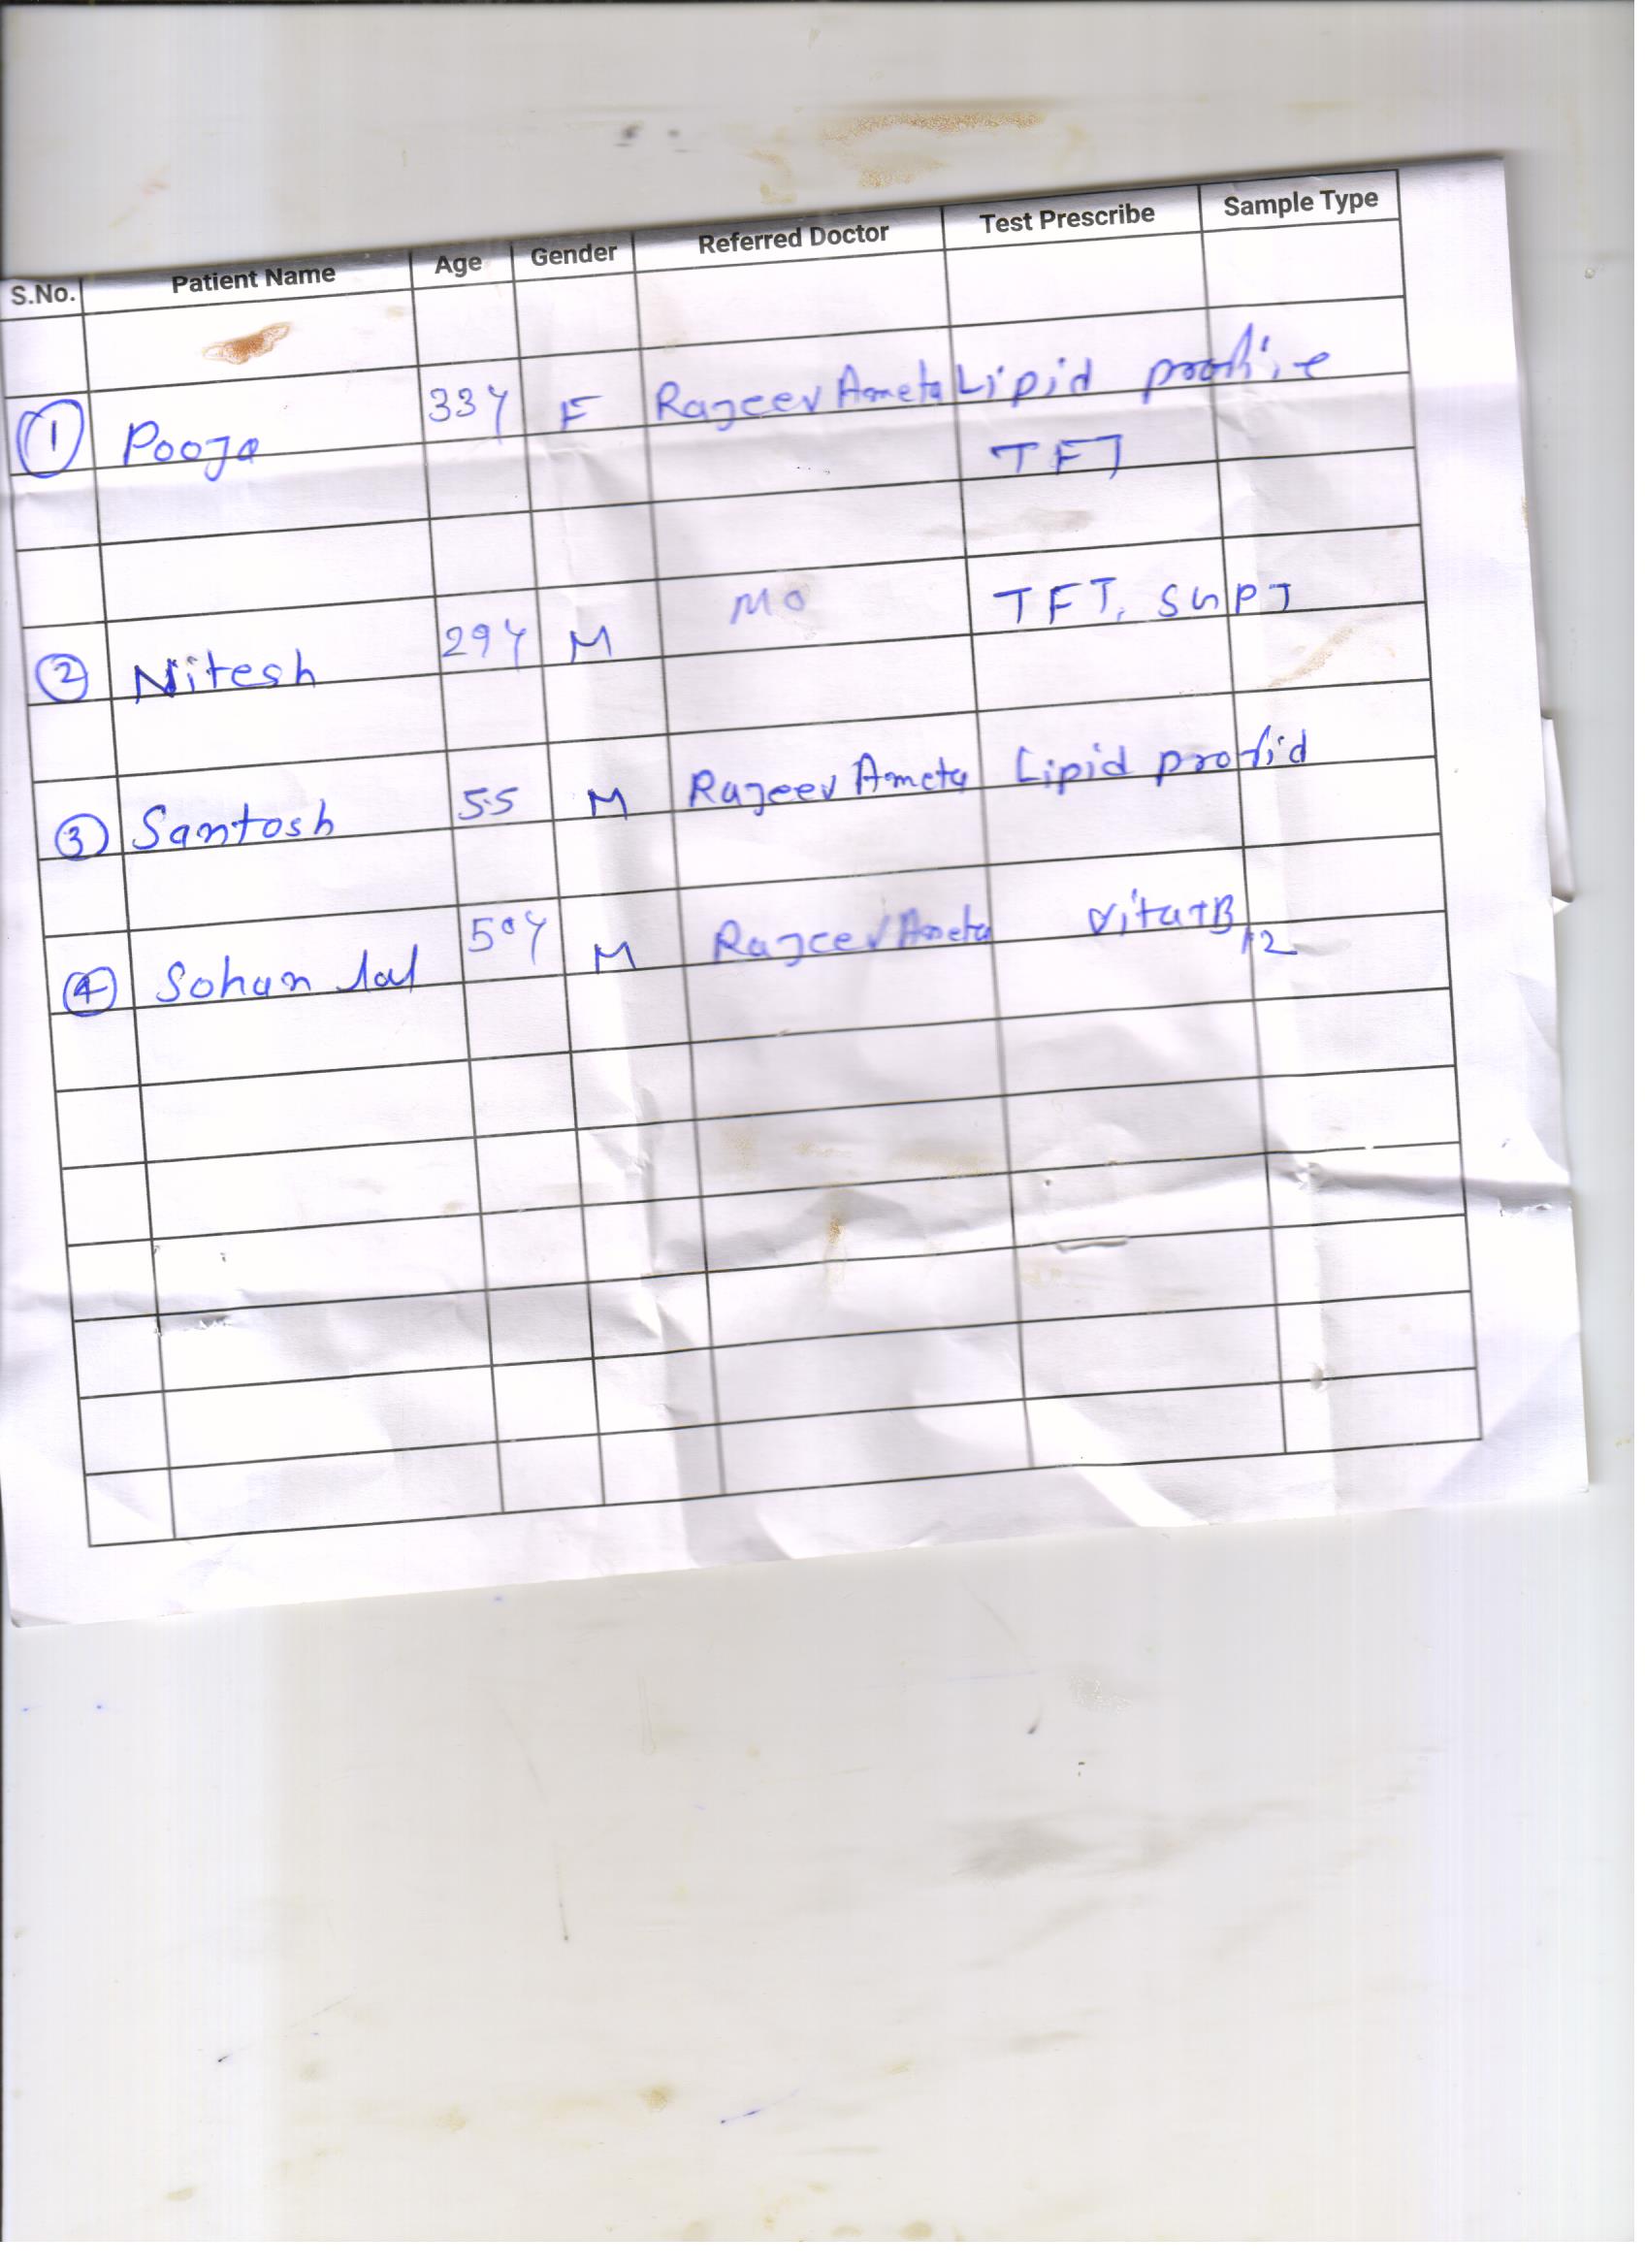 S.No. Patient Name Age Gender Referred Doctor Test Prescribe Sample Type
1 Pooja 33y F Rajeev Ameta Lipid profile
TFT
2 Nitesh 29y M MO TFT, SGPT
3 Santosh 55 M Rajeev Ameta Lipid profid
4 Sohan lal 50y M Rajeev Ameta B12